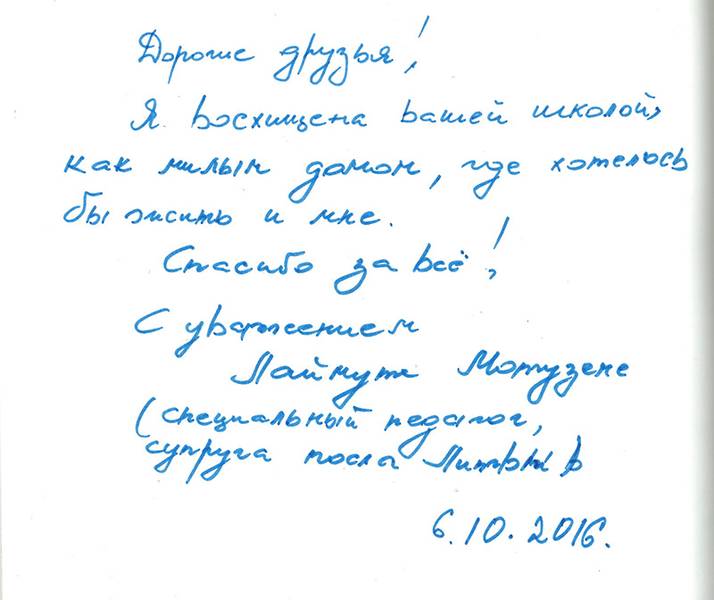 Дорогие друзья!
Я восхищена вашей школой,
как милым домом, где хотелось
бы жить и мне.
Спасибо за всё!
С уважением
Лайнуте Мотузене
(специальный педагог,
супруга посла Литвы в
6.10.2016.